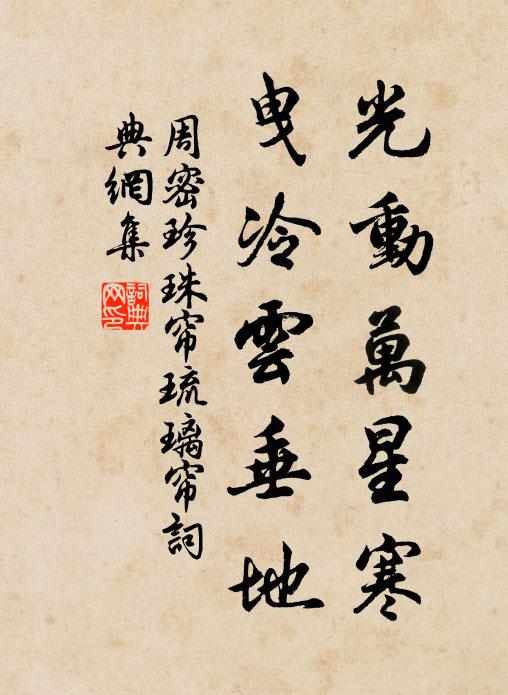 光動萬星寒
曳冷雲垂地
周密珍珠帘琉璃帘詞
典網集
詞典
网印